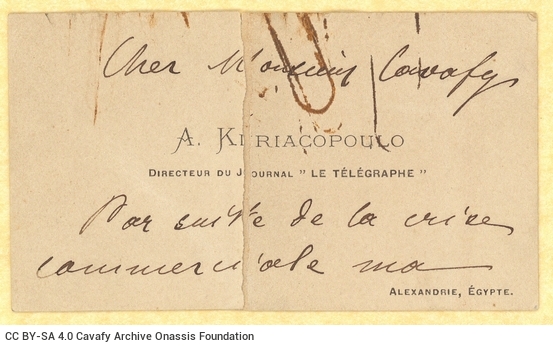 Cher Monsieur Cavafy
A. KYRIACOPOULO
DIRECTEUR DU JOURNAL " LE TÉLÉGRAPHE "
Par suite de la crise
commerciale ma
ALEXANDRIE, ÉGYPTE.
CC BY-SA 4.0 Cavafy Archive Onassis Foundation